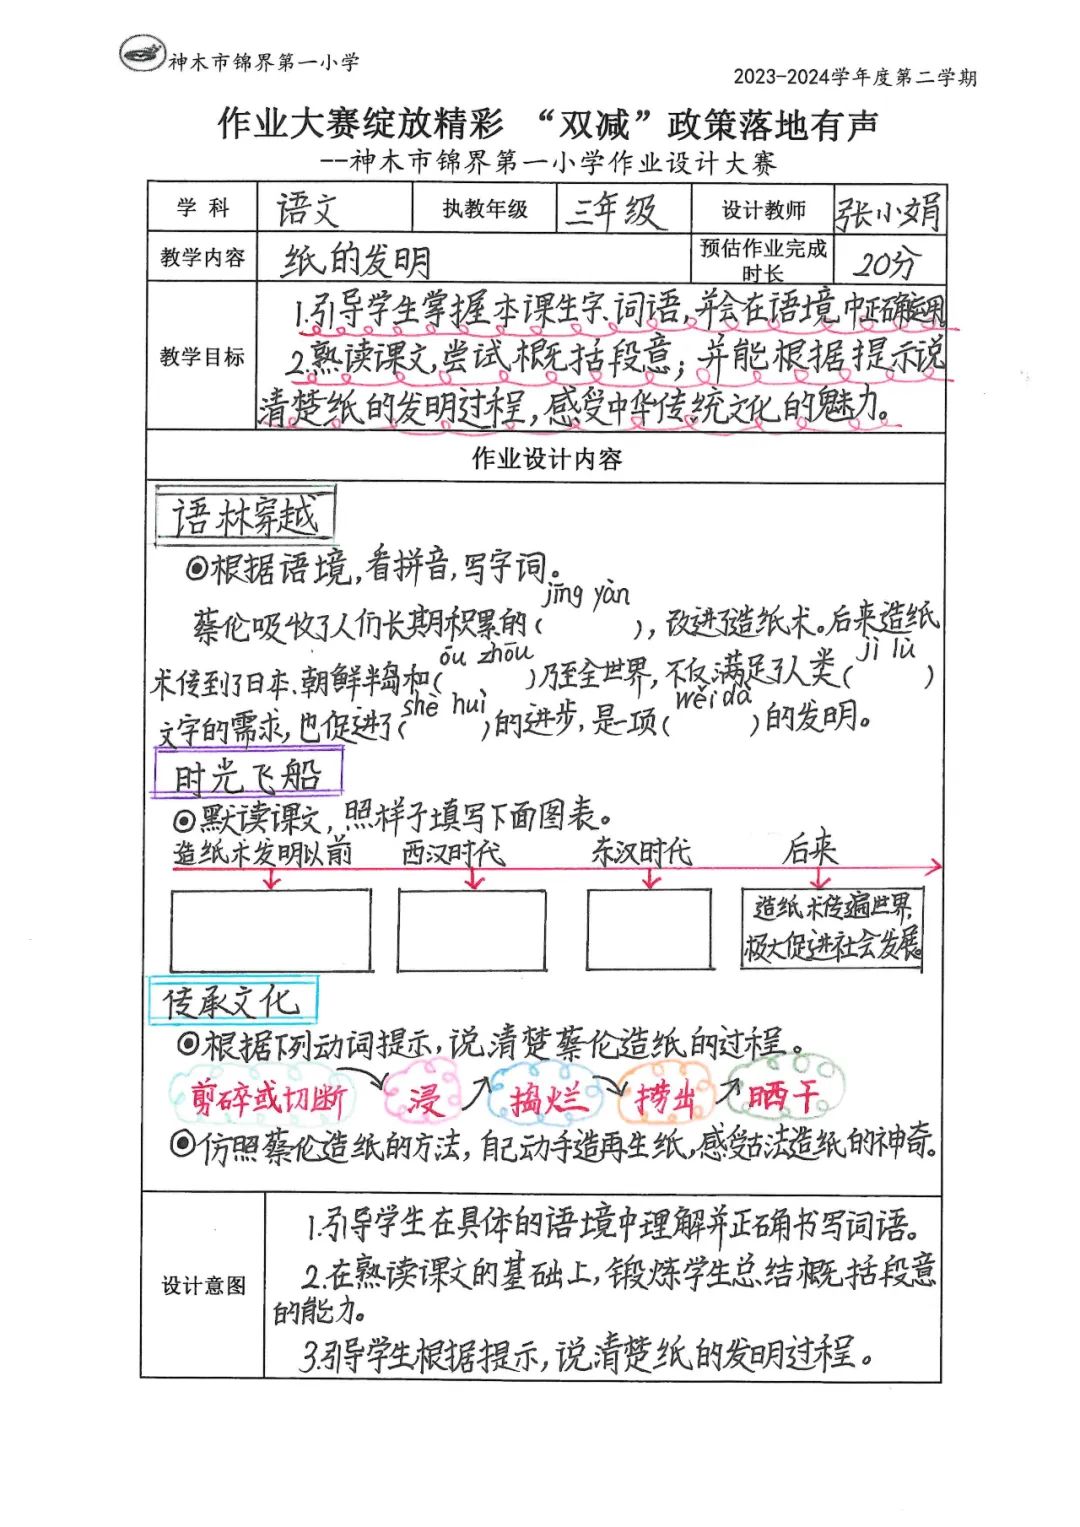 神木市锦界第一小学
2023-2024学年度第二学期
作业大赛绽放精彩 “双减”政策落地有声
--神木市锦界第一小学作业设计大赛
学 科 语文 执教年级 三年级 设计教师 张小娟
教学内容 纸的发明 预估作业完成时长 20分
教学目标
1.引导学生掌握本课生字、词语,并会在语境中正确运用。
2.熟读课文,尝试概括段意;并能根据提示说
清楚纸的发明过程,感受中华传统文化的魅力。
作业设计内容
语林穿越
◉根据语境,看拼音,写字词。
jīng yàn
蔡伦吸收了人们长期积累的( ),改进了造纸术。后来造纸
ōu zhōu jì lù
术传到了日本、朝鲜半岛和( )乃至全世界,不仅满足了人类( )
shè huì wěi dà
文字的需求,也促进了( )的进步,是一项( )的发明。
时光飞船
◉默读课文,照样子填写下面图表。
造纸术发明以前 西汉时代 东汉时代 后来
造纸术传遍世界,
极大促进社会发展。
传承文化
◉根据下列动词提示,说清楚蔡伦造纸的过程。
剪碎或切断 浸 捣烂 捞出 晒干
◉仿照蔡伦造纸的方法,自己动手造再生纸,感受古法造纸的神奇。
设计意图
1.引导学生在具体的语境中理解并正确书写词语。
2.在熟读课文的基础上,锻炼学生总结概括段意
的能力。
3.引导学生根据提示,说清楚纸的发明过程。